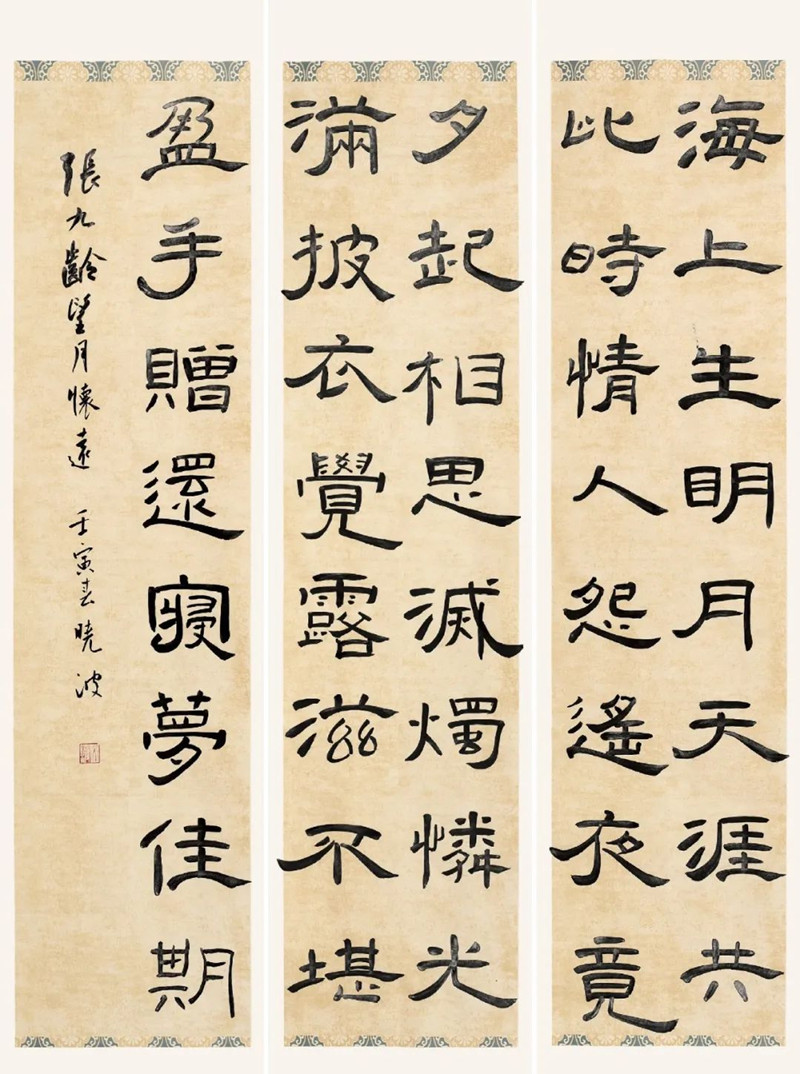 海上生明月天涯共
此時情人怨遙夜竟
夕起相思滅燭憐光
滿披衣覺露滋不堪
盈手贈還寢夢佳期
張九齡望月懷遠 壬寅春曉波